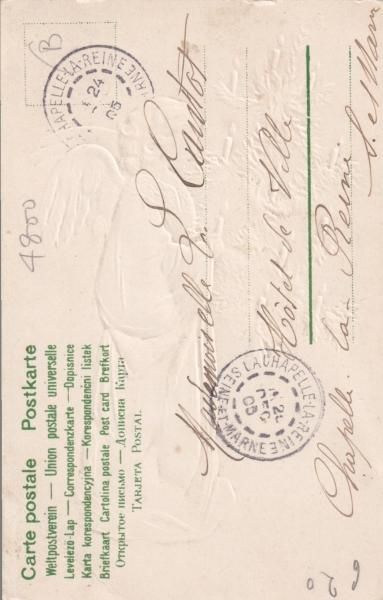 Carte postale Postkarte
Weltpostverein — Union postale universelle
Levelező-Lap — Correspondenzkarte — Dopisnice
Karta korespondencyjna — Korespondenční listek
Briefkaart Cartolina postale Post card Brefkort
Открытое письмо — Дописна Карта
TARJETA POSTAL
4800
B
CHAPELLE-LA-REINE
24
05
Mademoiselle
Hôtel de Ville
Chapelle la Reine
S. et Marne
LA CHAPELLE-LA-REINE
SEINE-ET-MARNE
24
DEC
05